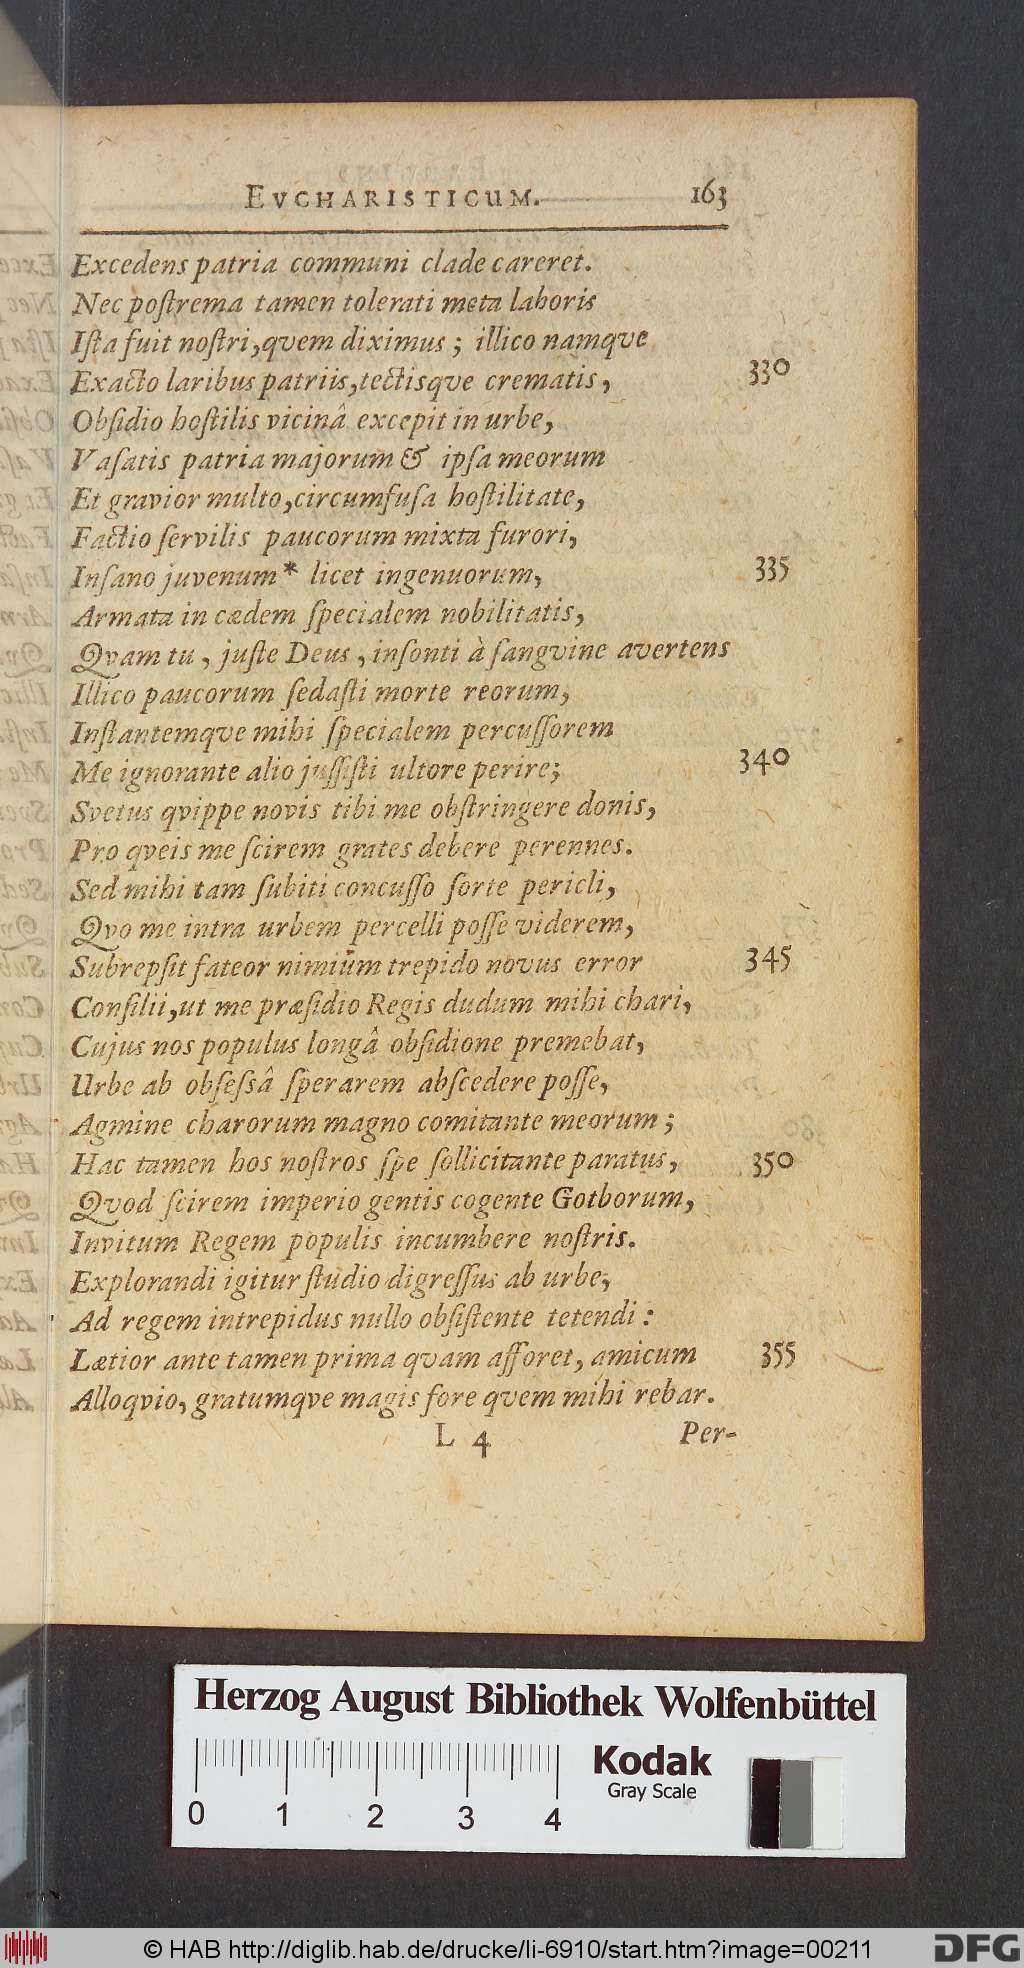 EVCHARISTICUM. 163
Excedens patria communi clade careret.
Nec postrema tamen tolerati meta laboris
Ista fuit nostri, qvem diximus; illico namqve
Exacto laribus patriis, tectisqve crematis, 330
Obsidio hostilis vicinâ excepit in urbe,
Vasatis patria majorum & ipsa meorum
Et gravior multo, circumfusa hostilitate,
Factio servilis paucorum mixta furori,
Insano juvenum* licet ingenuorum, 335
Armata in cædem specialem nobilitatis,
Qvam tu, juste Deus, insonti à sangvine avertens
Illico paucorum sedasti morte reorum,
Instantemqve mihi specialem percussorem
Me ignorante alio jussisti ultore perire; 340
Svetus qvippe novis tibi me obstringere donis,
Pro qveis me scirem grates debere perennes.
Sed mihi tam subiti concusso sorte pericli,
Qvo me intra urbem percelli posse viderem,
Subrepsit fateor nimiùm trepido novus error 345
Consilii, ut me præsidio Regis dudum mihi chari,
Cujus nos populus longâ obsidione premebat,
Urbe ab obsessâ sperarem abscedere posse,
Agmine charorum magno comitante meorum;
Hac tamen hos nostros spe sollicitante paratus, 350
Qvod scirem imperio gentis cogente Gothorum,
Invitum Regem populis incumbere nostris.
Explorandi igitur studio digressus ab urbe,
Ad regem intrepidus nullo obsistente tetendi:
Lætior ante tamen prima qvam afforet, amicum 355
Alloqvio, gratumqve magis fore qvem mihi rebar.
L 4 Per-
Herzog August Bibliothek Wolfenbüttel
Kodak
Gray Scale
0 1 2 3 4
© HAB http://diglib.hab.de/drucke/li-6910/start.htm?image=00211
DFG